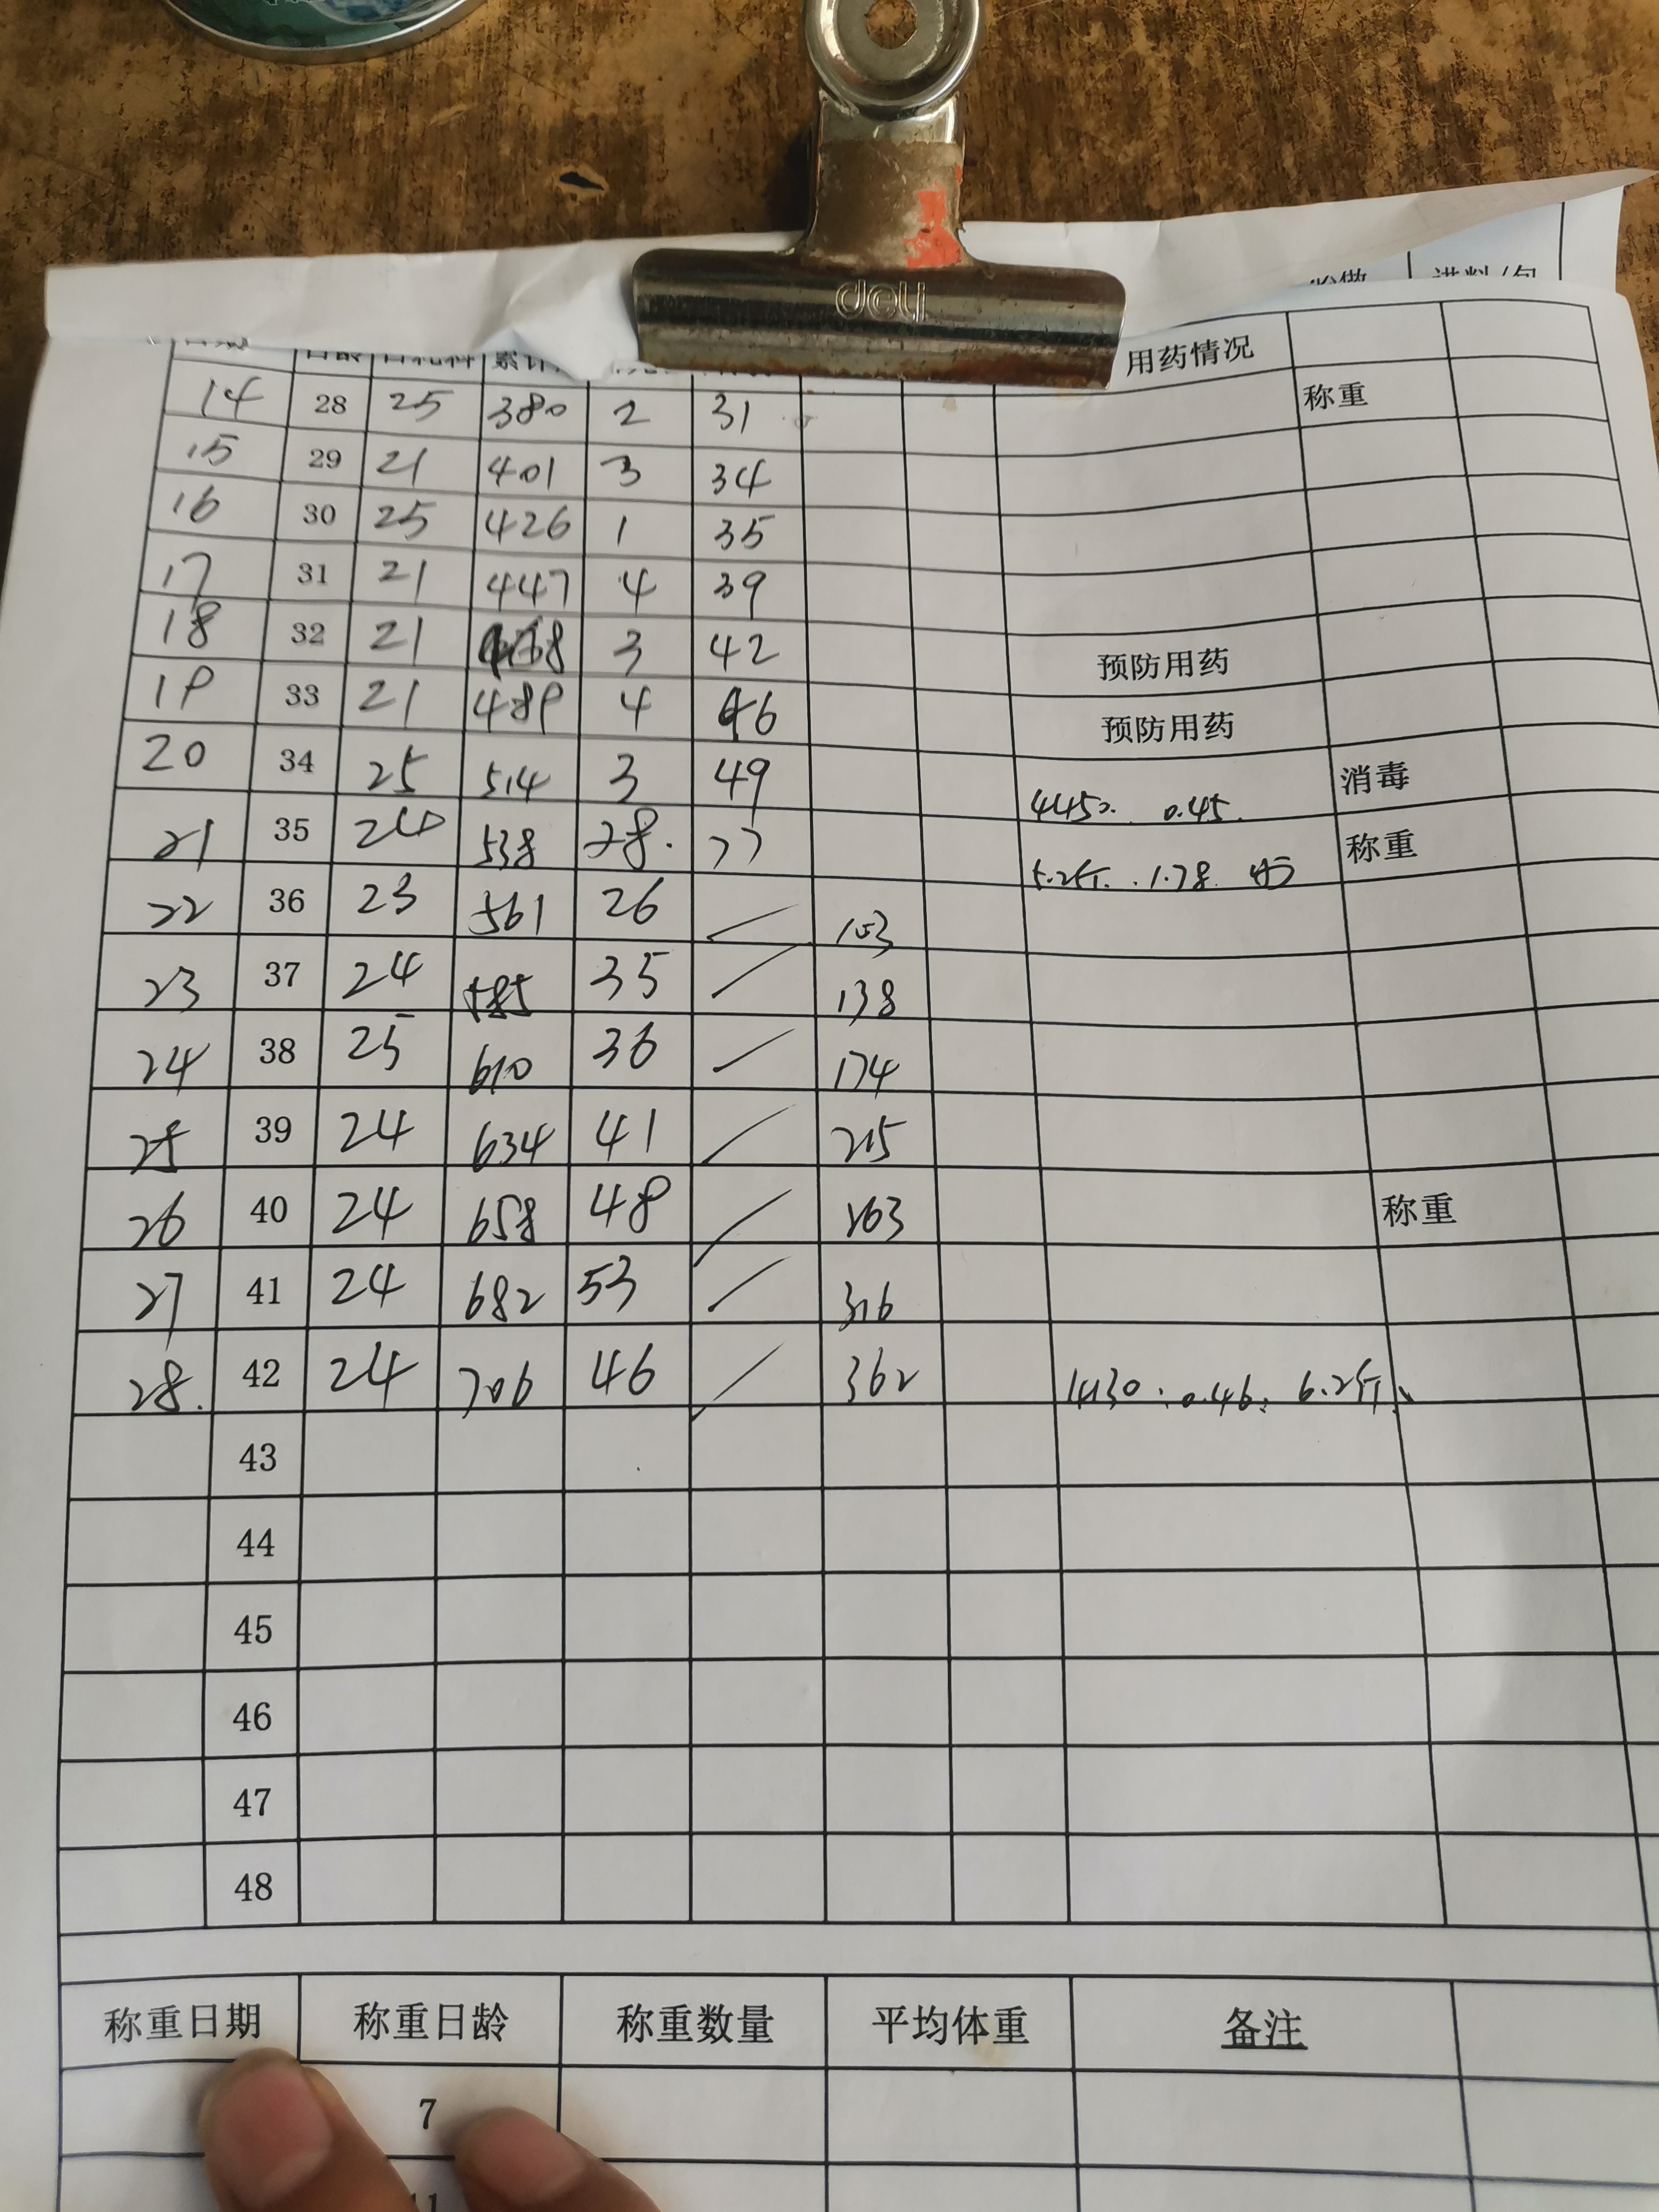 deli
进料/包
日期 日龄 日耗料 累计 用药情况
14 28 25 380 2 31 称重
15 29 21 401 3 34
16 30 25 426 1 35
17 31 21 447 4 39
18 32 21 468 3 42 预防用药
19 33 21 489 4 46 预防用药
20 34 25 514 3 49 4450. 0.45. 消毒
21 35 24 538 28. 77 5.2斤. 1.78. 称重
22 36 23 561 26 103
23 37 24 585 35 138
24 38 25 610 36 174
25 39 24 634 41 215
26 40 24 658 48 263 称重
27 41 24 682 53 316
28. 42 24 706 46 362 0.46; 6.2斤
43
44
45
46
47
48
称重日期 称重日龄 称重数量 平均体重 备注
7
11